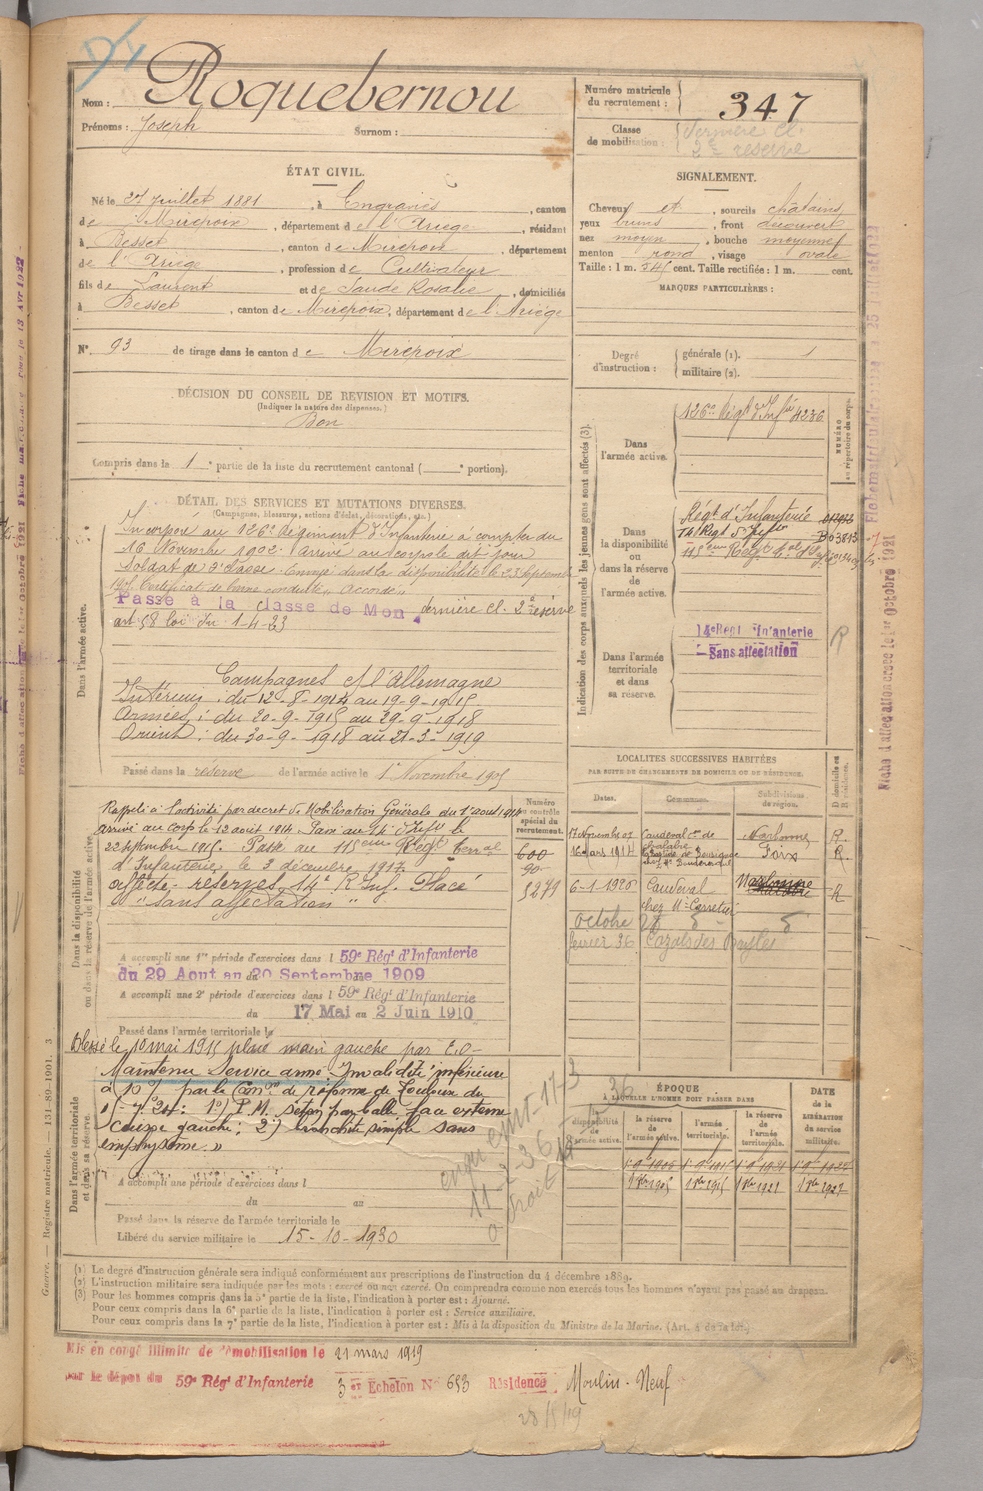 Nom : Roquebernou
Prénoms : Joseph Surnom :
Numéro matricule du recrutement : 347
Classe de mobilisation : Dernière Cl.
2e réserve
ÉTAT CIVIL.
Né le 27 Juillet 1881, à Engraviès, canton
de Mirepoix, département de l'Ariège, résidant
à Besset, canton de Mirepoix, département
de l'Ariège, profession de Cultivateur
fils de Laurent et de Saude Rosalie, domiciliés
à Besset, canton de Mirepoix, département de l'Ariège
N° 93 de tirage dans le canton de Mirepoix
SIGNALEMENT.
Cheveux et, sourcils châtains
yeux bruns, front découvert
nez moyen, bouche moyenne
menton rond, visage ovale
Taille : 1 m. cent. Taille rectifiée : 1 m. cent.
MARQUES PARTICULIÈRES :
Degré d'instruction : générale (1). 1
militaire (2).
DÉCISION DU CONSEIL DE REVISION ET MOTIFS.
(Indiquer la nature des dispenses.)
Bon
Compris dans la 1e partie de la liste du recrutement cantonal ( e portion).
DÉTAIL DES SERVICES ET MUTATIONS DIVERSES.
(Campagnes, blessures, actions d'éclat, décorations, etc.)
Dans l'armée active.
Incorporé au 126e Régiment d'Infanterie à compter du
16 Novembre 1902. Arrivé au corps le dit jour
Soldat de 2e classe. Envoyé dans la disponibilité le 23 Septembre
1905. Certificat de bonne conduite "Accordé"
Passé à la classe de Mon dernière cl. 2e réserve
art 58 loi du 1-4-23
Campagnes c/ l'Allemagne
Intérieur : du 12-8-1914 au 19-9-1915
Armées : du 20-9-1915 au 29-9-1918
Orient : du 30-9-1918 au 21-3-1919
Passé dans la réserve de l'armée active le 1er Novembre 1905
Indication des corps auxquels les jeunes gens sont affectés (3).
NUMÉRO au répertoire du corps.
Dans l'armée active.
126e Régt d'Infie 4236
Dans la disponibilité ou dans la réserve de l'armée active.
Régt d'Infanterie
14e Régt d'Inftie
115eme Régt
Dans l'armée territoriale et dans sa réserve.
14e Régt Infanterie
Sans affectation
R
Dans la disponibilité ou dans la réserve de l'armée active.
Rappelé à l'activité par décret de Mobilisation Générale du 1er août 1914
arrivé au corps le 12 août 1914. Passé au 14e d'Infie le
22 septembre 1915. Passé au 115eme Régt Terral
d'Infanterie, le 3 décembre 1917
affecté réserves 14e R Inf. Placé
"sans affectation"
Numéro au contrôle spécial du recrutement.
600
90
5279
A accompli une 1re période d'exercices dans l 59e Régt d'Infanterie
du 29 Aout au 20 Septembre 1909
A accompli une 2e période d'exercices dans l 59e Régt d'Infanterie
du 17 Mai au 2 Juin 1910
Passé dans l'armée territoriale le
LOCALITES SUCCESSIVES HABITÉES
PAR SUITE DE CHANGEMENTS DE DOMICILE OU DE RÉSIDENCE.
Dates. Communes. Subdivisions de région. D domicile ou R résidence.
17 Novembre 07 Caudeval con de Chalabre Narbonne R.
16 mars 1914 Foix R.
6-1-1920 Caudeval chez Mr Narbonne R
octobre 28
février 36 Cazals des Bayles
Dans l'armée territoriale et dans sa réserve.
Blessé le 10 mai 1915 plaie main gauche par E.O-
Maintenu Service armé. Invalidité inférieure
à 10 % par la Comon de réforme de Toulouse du
1er) P.M. séton par balle, face externe
gauche : 2°) bronchite simple sans
emphysème."
A accompli une période d'exercices dans l
du au
Passé dans la réserve de l'armée territoriale le
Libéré du service militaire le 15-10-1930
11-2-36
à droit
ÉPOQUE
À LAQUELLE L'HOMME DOIT PASSER DANS
DATE DE LA LIBÉRATION du service militaire.
la disponibilité de l'armée active. la réserve de l'armée active. l'armée territoriale. la réserve de l'armée territoriale.
1er 9bre 1905 1er 9bre 1915 1er 8bre 1921 1er 8bre 1927
(1) Le degré d'instruction générale sera indiqué conformément aux prescriptions de l'instruction du 4 décembre 1889.
(2) L'instruction militaire sera indiquée par les mots : exercé ou non exercé. On comprendra comme non exercés tous les hommes n'ayant pas passé au drapeau.
(3) Pour les hommes compris dans la 5e partie de la liste, l'indication à porter est : Ajourné.
Pour ceux compris dans la 6e partie de la liste, l'indication à porter est : Service auxiliaire.
Pour ceux compris dans la 7e partie de la liste, l'indication à porter est : Mis à la disposition du Ministre de la Marine. (Art. 4 de la loi.)
Guerre. — Registre matricule. — 131-89-1901. 3
Mis en congé illimité de démobilisation le 21 mars 1919
par le dépôt du 59e Régt d'Infanterie 3er Echelon N° 653 Résidence Moulin-Neuf
Fiche d'affectation créée le 1er Octobre 1921